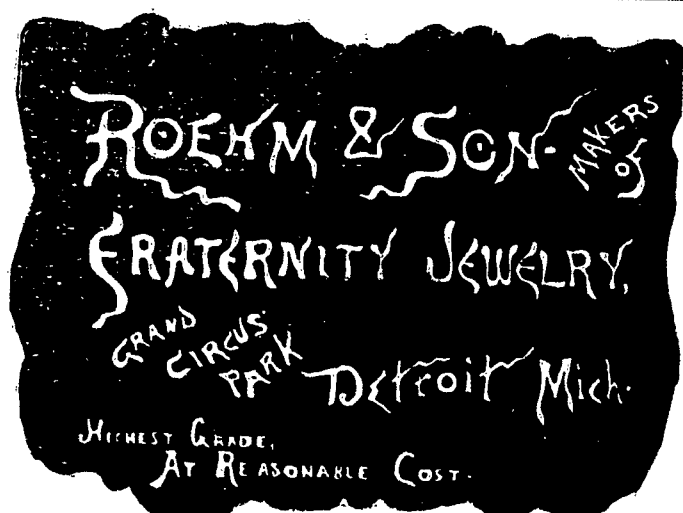 ROEHM & SON. MAKERS OF
FRATERNITY JEWELRY,
GRAND CIRCUS PARK DETROIT MICH.
HIGHEST GRADE,
AT REASONABLE COST.